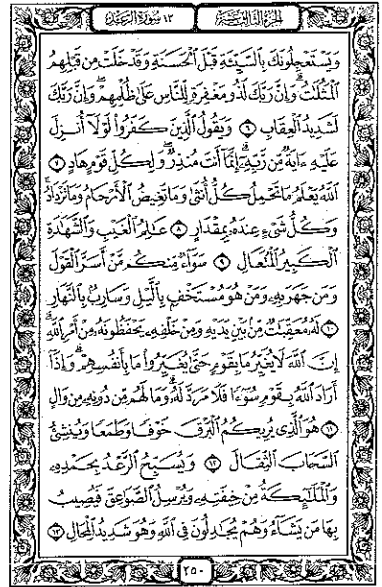 الجزء الثالث عشر
١٣ سورة الرعد
وَيَسْتَعْجِلُونَكَ بِالسَّيِّئَةِ قَبْلَ الْحَسَنَةِ وَقَدْ خَلَتْ مِن قَبْلِهِمُ
الْمَثُلَاتُ وَإِنَّ رَبَّكَ لَذُو مَغْفِرَةٍ لِّلنَّاسِ عَلَىٰ ظُلْمِهِمْ وَإِنَّ رَبَّكَ
لَشَدِيدُ الْعِقَابِ ٦ وَيَقُولُ الَّذِينَ كَفَرُوا لَوْلَا أُنزِلَ
عَلَيْهِ ءَايَةٌ مِّن رَّبِّهِ إِنَّمَا أَنتَ مُنذِرٌ وَلِكُلِّ قَوْمٍ هَادٍ ٧
اللَّهُ يَعْلَمُ مَا تَحْمِلُ كُلُّ أُنثَىٰ وَمَا تَغِيضُ الْأَرْحَامُ وَمَا تَزْدَادُ
وَكُلُّ شَيْءٍ عِندَهُ بِمِقْدَارٍ ٨ عَالِمُ الْغَيْبِ وَالشَّهَادَةِ
الْكَبِيرُ الْمُتَعَالِ ٩ سَوَاءٌ مِّنكُم مَّنْ أَسَرَّ الْقَوْلَ
وَمَن جَهَرَ بِهِ وَمَنْ هُوَ مُسْتَخْفٍ بِاللَّيْلِ وَسَارِبٌ بِالنَّهَارِ
١٠ لَهُ مُعَقِّبَاتٌ مِّن بَيْنِ يَدَيْهِ وَمِنْ خَلْفِهِ يَحْفَظُونَهُ مِنْ أَمْرِ اللَّهِ
إِنَّ اللَّهَ لَا يُغَيِّرُ مَا بِقَوْمٍ حَتَّىٰ يُغَيِّرُوا مَا بِأَنفُسِهِمْ وَإِذَا
أَرَادَ اللَّهُ بِقَوْمٍ سُوءًا فَلَا مَرَدَّ لَهُ وَمَا لَهُم مِّن دُونِهِ مِن وَالٍ
١١ هُوَ الَّذِي يُرِيكُمُ الْبَرْقَ خَوْفًا وَطَمَعًا وَيُنشِئُ
السَّحَابَ الثِّقَالَ ١٢ وَيُسَبِّحُ الرَّعْدُ بِحَمْدِهِ
وَالْمَلَائِكَةُ مِنْ خِيفَتِهِ وَيُرْسِلُ الصَّوَاعِقَ فَيُصِيبُ
بِهَا مَن يَشَاءُ وَهُمْ يُجَادِلُونَ فِي اللَّهِ وَهُوَ شَدِيدُ الْمِحَالِ ١٣
٢٥٠